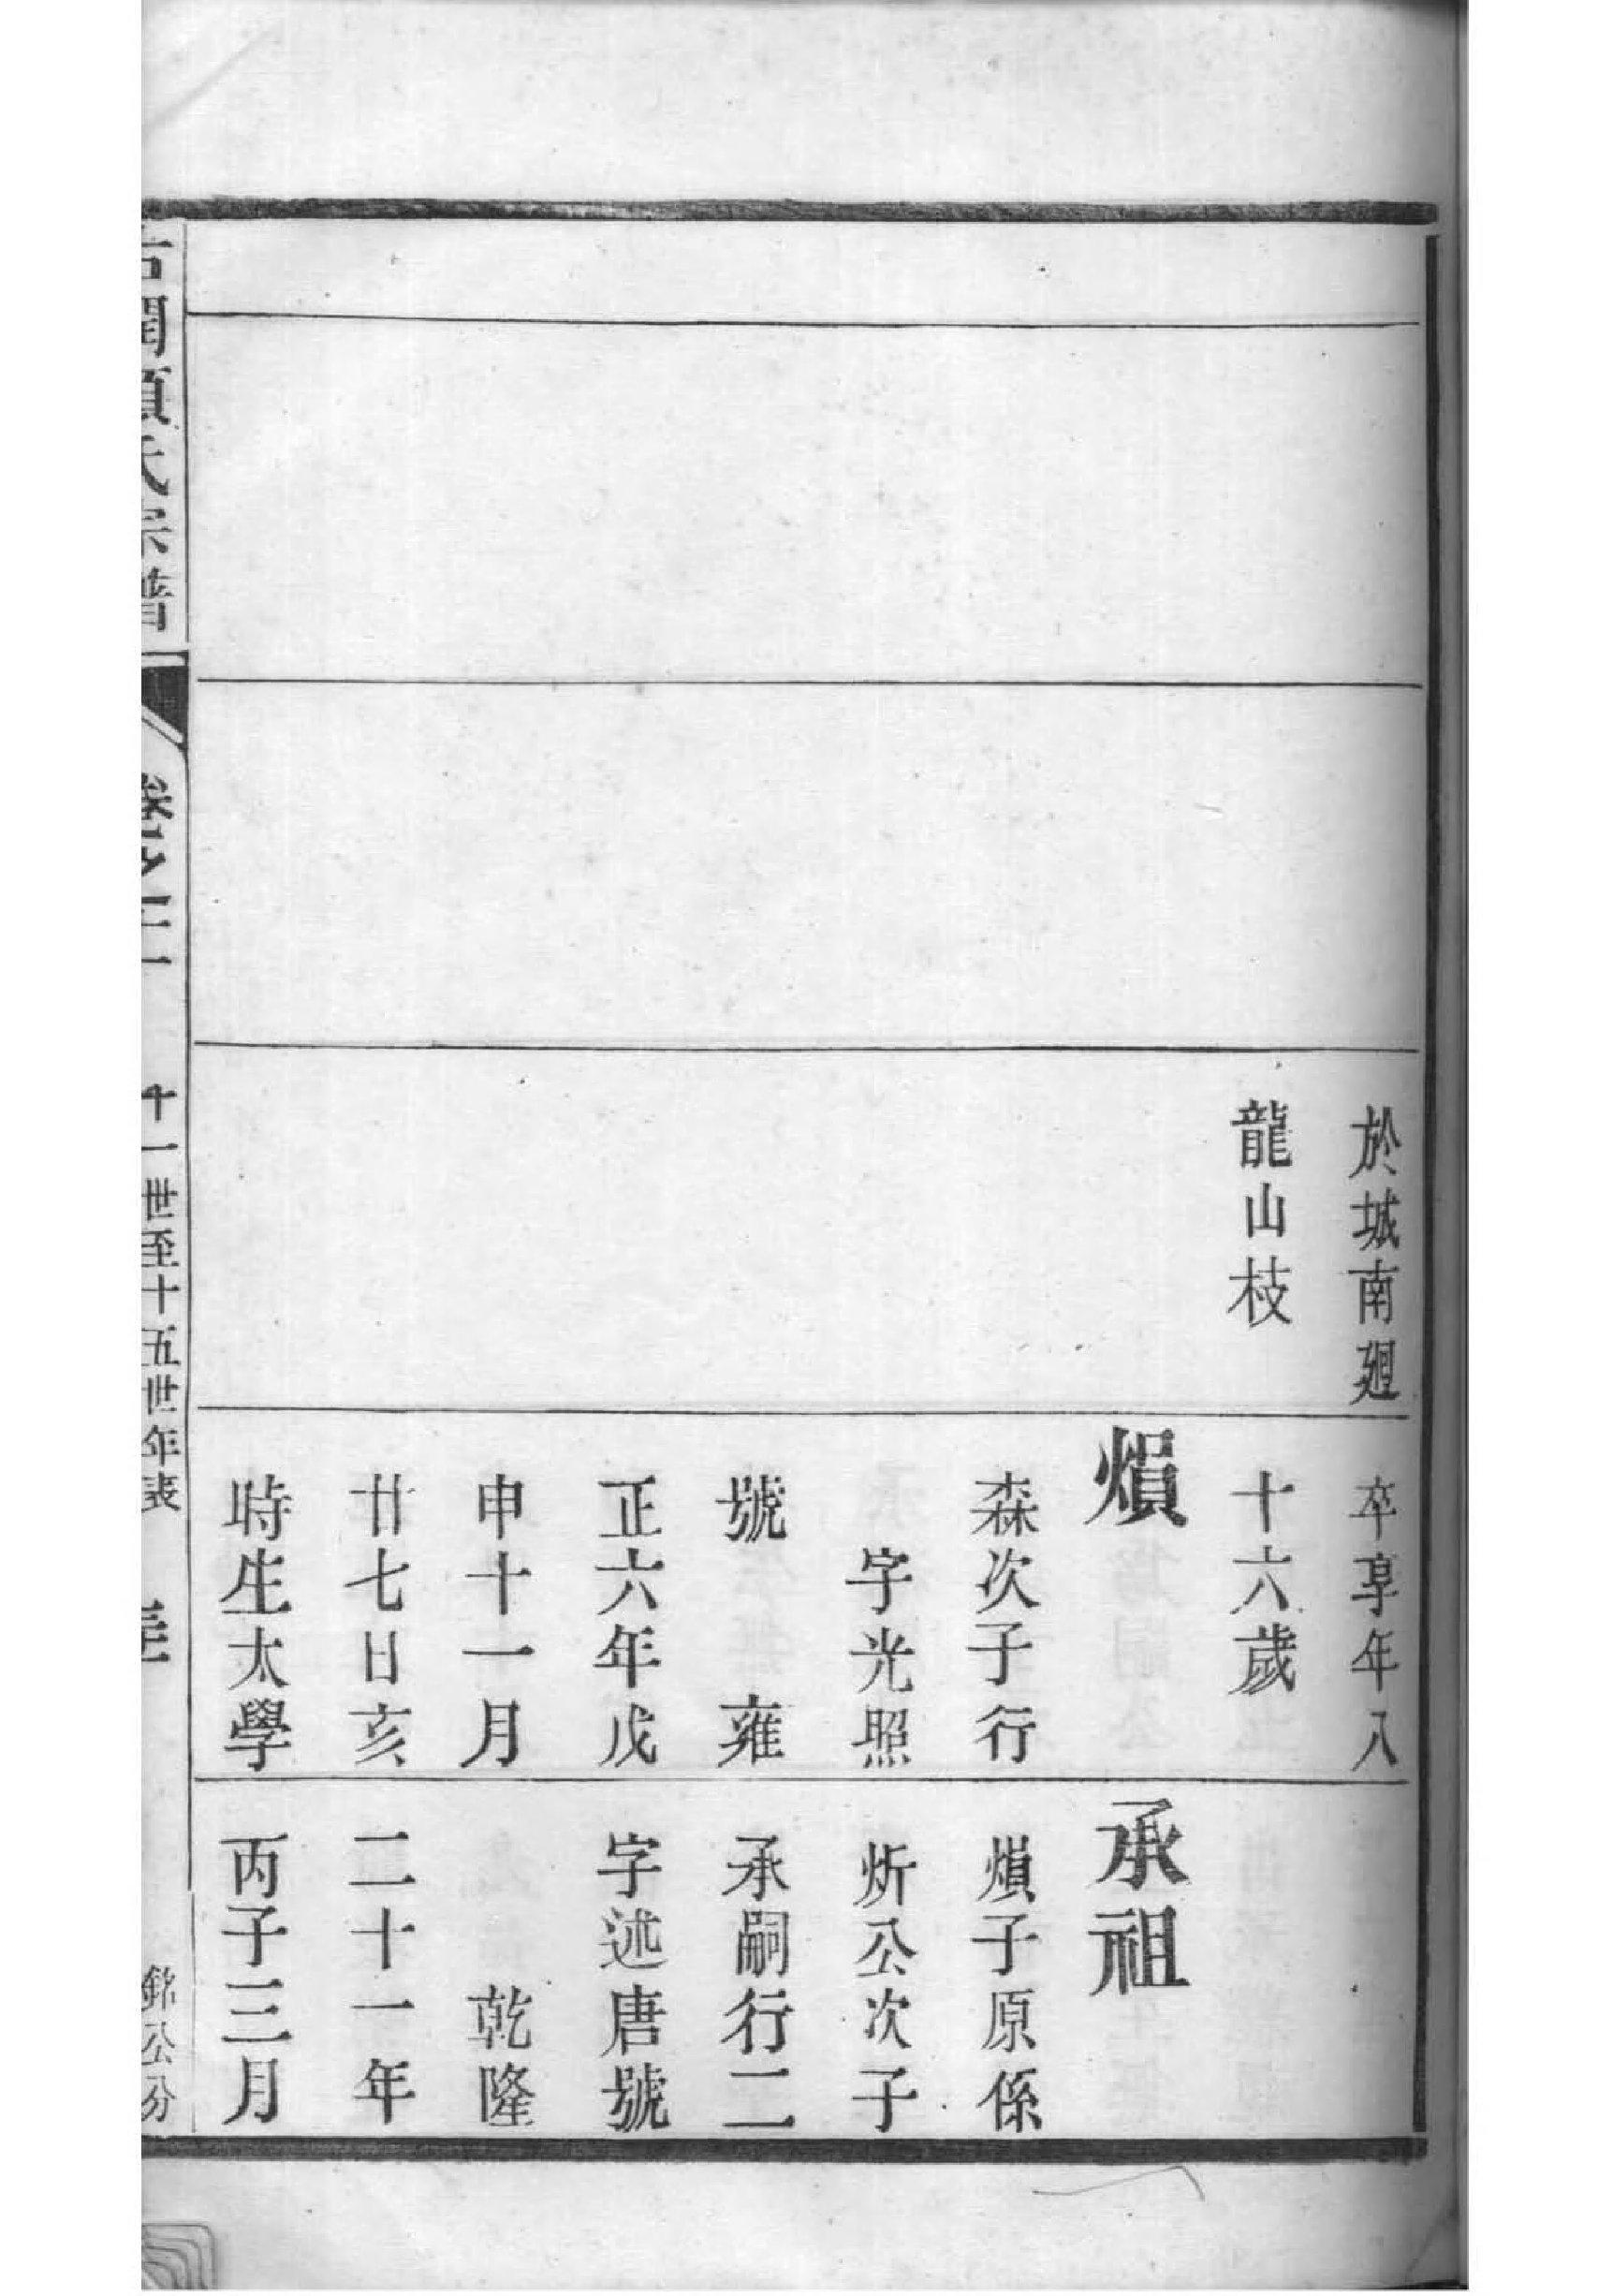 於城南廻
龍山枝
卒享年八
十六歲
熉
森次子行
字光照
號　雍
正六年戊
申十一月
廿七日亥
時生太學
承祖
熉子原係
炘公次子
承嗣行二
字述唐號
乾隆
二十一年
丙子三月
氏宗譜
卷之二
十一世至十五世年表
銘公分